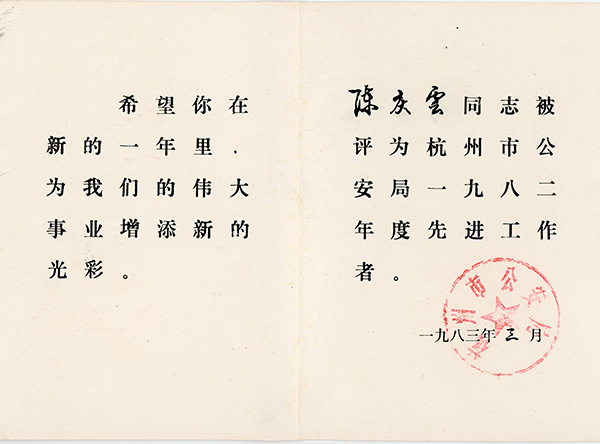 希望你在
新的一年里，
为我们的伟大
事业增添新的
光彩。
陈庆雲同志被
评为杭州市公
安局一九八二
年度先进工作
者。
杭州市公安局
一九八三年三月